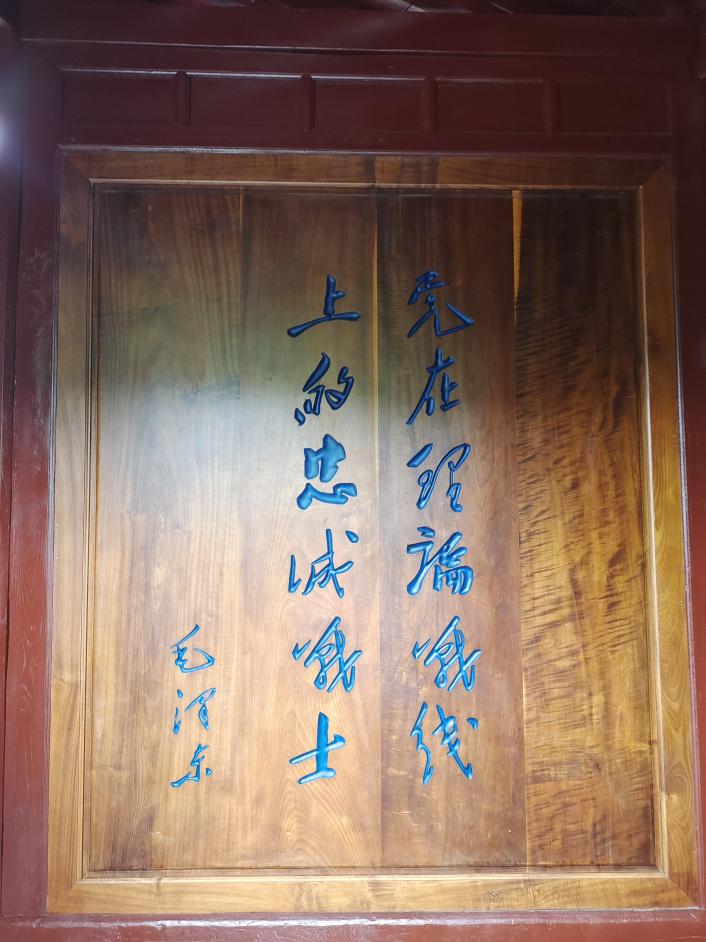 党在理論戰线
上的忠诚戰士
毛泽东